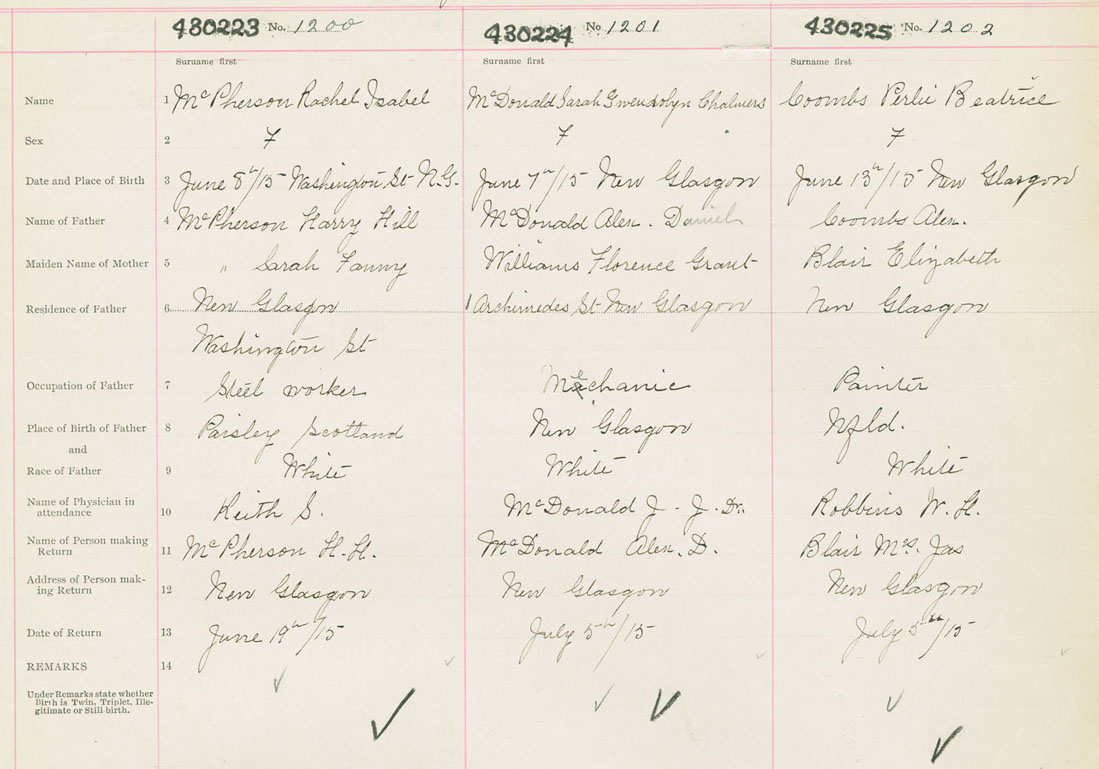 430223 No. 1200 430224 No 1201 430225 No. 1202
Surname first Surname first Surname first
Name 1 McPherson Rachel Isabel McDonald Sarah Gwendolyn Chalmers Coombs Perlie Beatrice
Sex 2 F F F
Date and Place of Birth 3 June 8th/15 Washington St N.G. June 7th/15 New Glasgow June 13th/15 New Glasgow
Name of Father 4 McPherson Harry Hill McDonald Alex. Daniel Coombs Alex.
Maiden Name of Mother 5 " Sarah Fanny Williams Florence Grant Blair Elizabeth
Residence of Father 6 New Glasgow 1 Archimedes St New Glasgow New Glasgow
Washington St
Occupation of Father 7 Steel worker Mechanic Painter
Place of Birth of Father 8 Paisley Scotland New Glasgow Nfld.
and
Race of Father 9 White White White
Name of Physician in
attendance 10 Keith S. McDonald J. J. Dr. Robbins W. H.
Name of Person making
Return 11 McPherson H. H. McDonald Alex. D. Blair Mrs. Jas
Address of Person mak-
ing Return 12 New Glasgow New Glasgow New Glasgow
Date of Return 13 June 19th/15 July 5th/15 July 5th/15
REMARKS 14
Under Remarks state whether
Birth is Twin, Triplet, Ille-
gitimate or Still-birth.